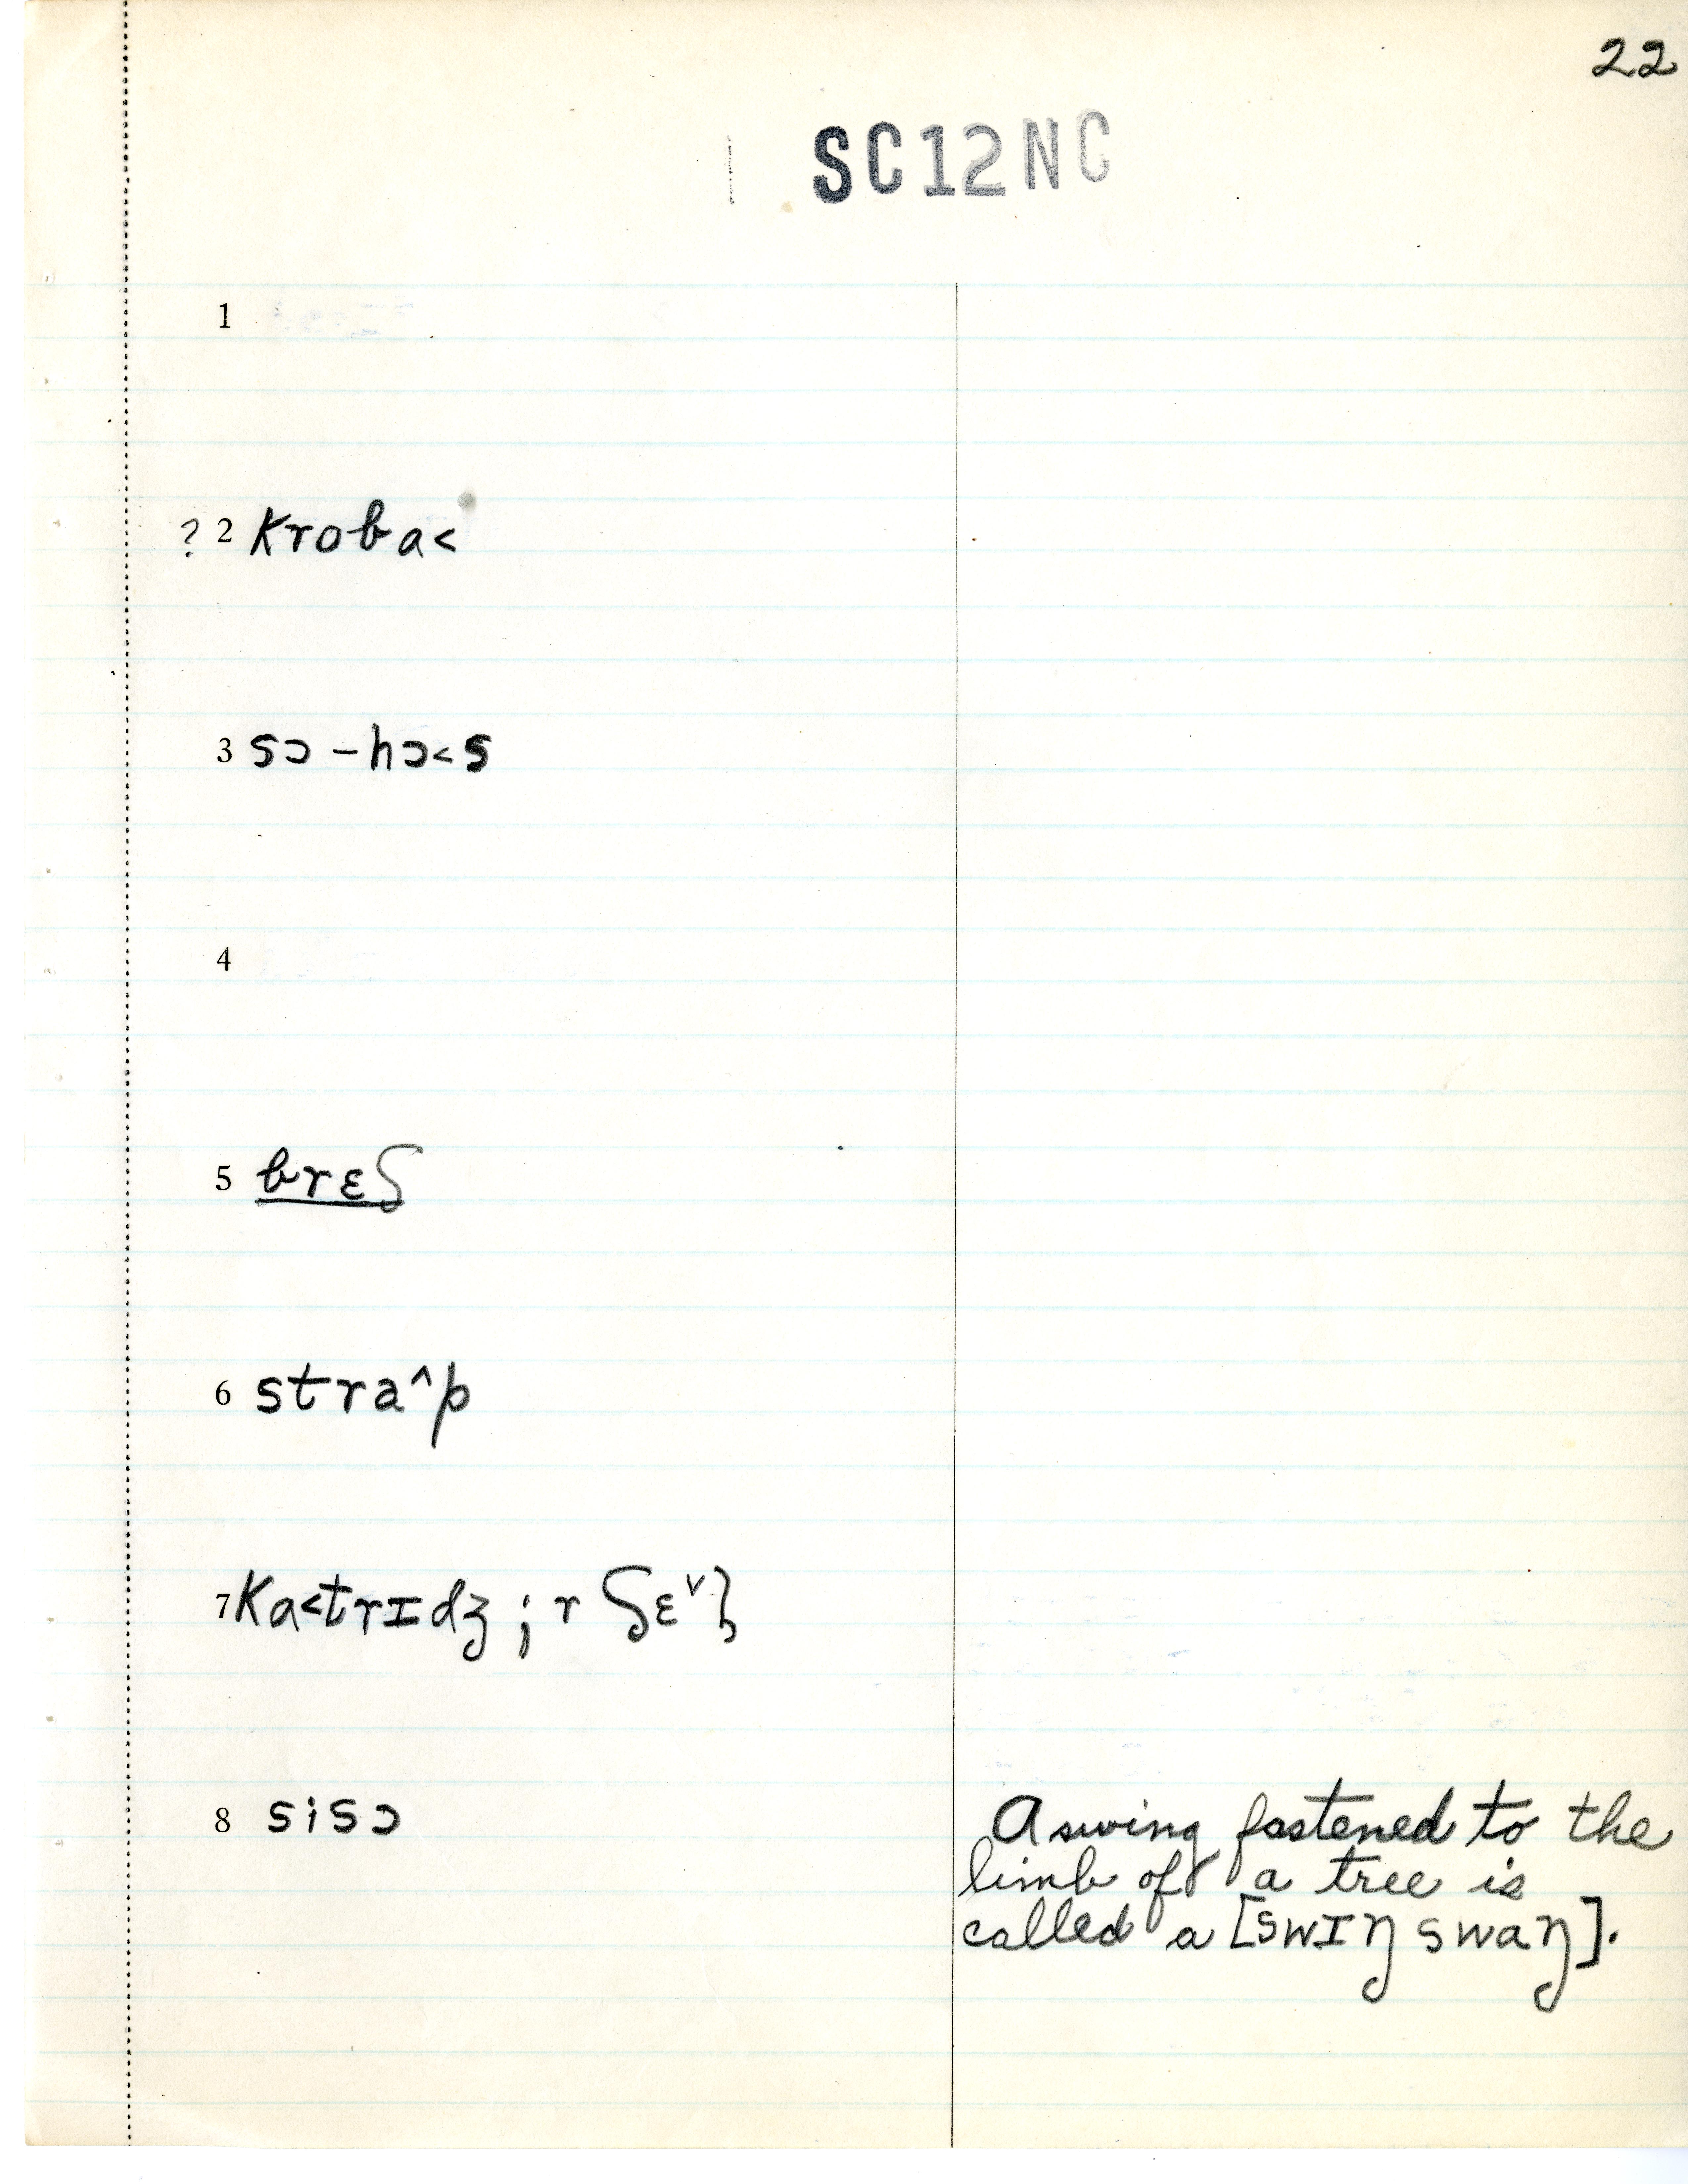 22
SC12NC
1
? 2 kroba<
3 sɔ - hɔ<s
4
5 brɛʃ
6 stra^p
7 ka<trɪdʒ ; r ʃɛ^v
8 sisɔ
A swing fastened to the
limb of a tree is
called a [swɪŋ swaŋ].